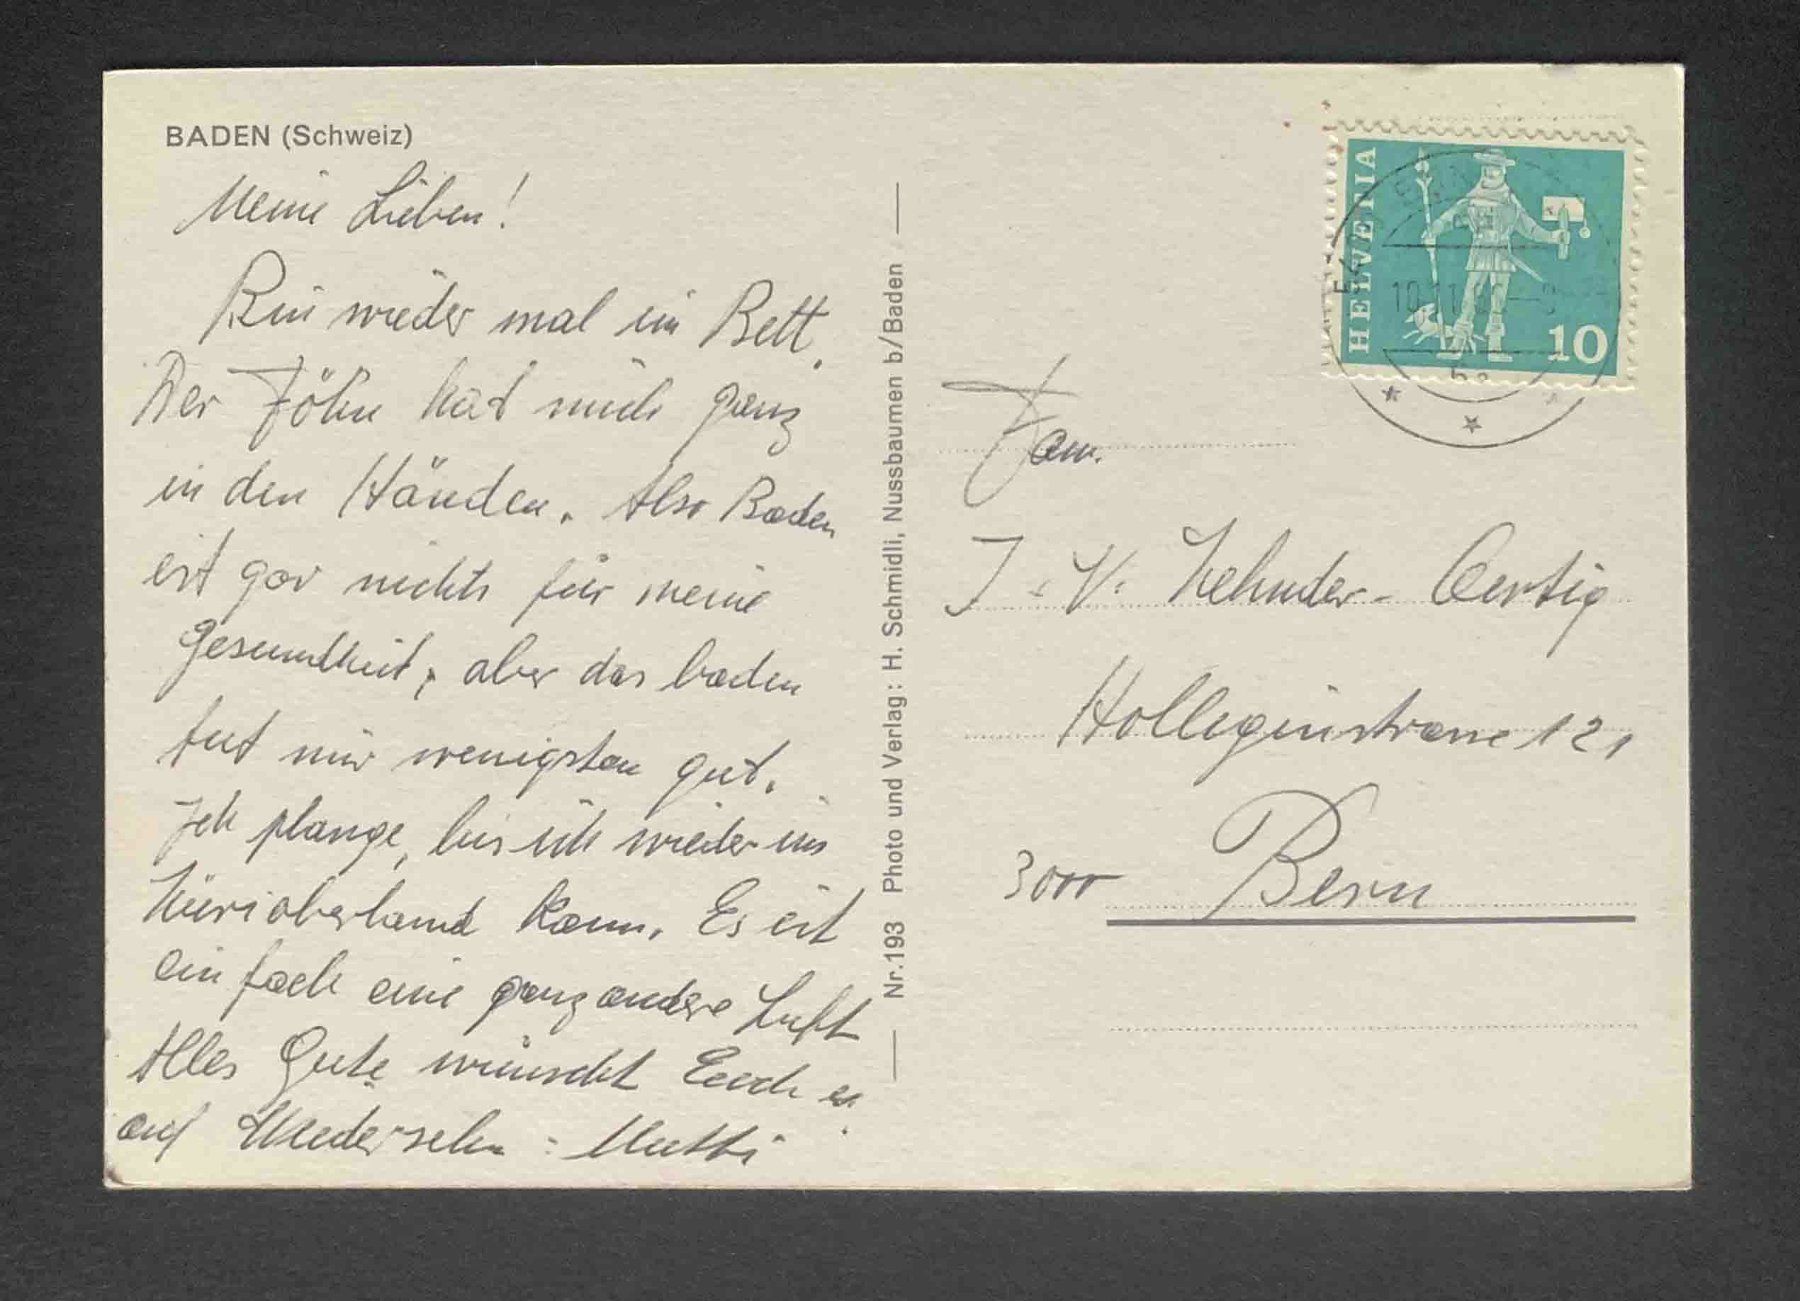 BADEN (Schweiz)
Meine Lieben!
Bin wieder mal im Bett.
Der Föhn hat mich ganz
in den Händen. Also Baden
ist gar nichts für meine
Gesundheit, aber das baden
tut mir wenigsten gut.
Ich plange, bis ich wieder ins
Zürioberland kann. Es ist
einfach eine ganz andere Luft
Alles Gute wünscht Euch
auf Wiedersehn: Mutti
Nr. 193 Photo und Verlag: H. H. Schmidli, Nussbaumen b/Baden
HELVETIA
10
Fam.
J. V. Zehnder-Oertig
Holligenstrasse 121
3000 Bern